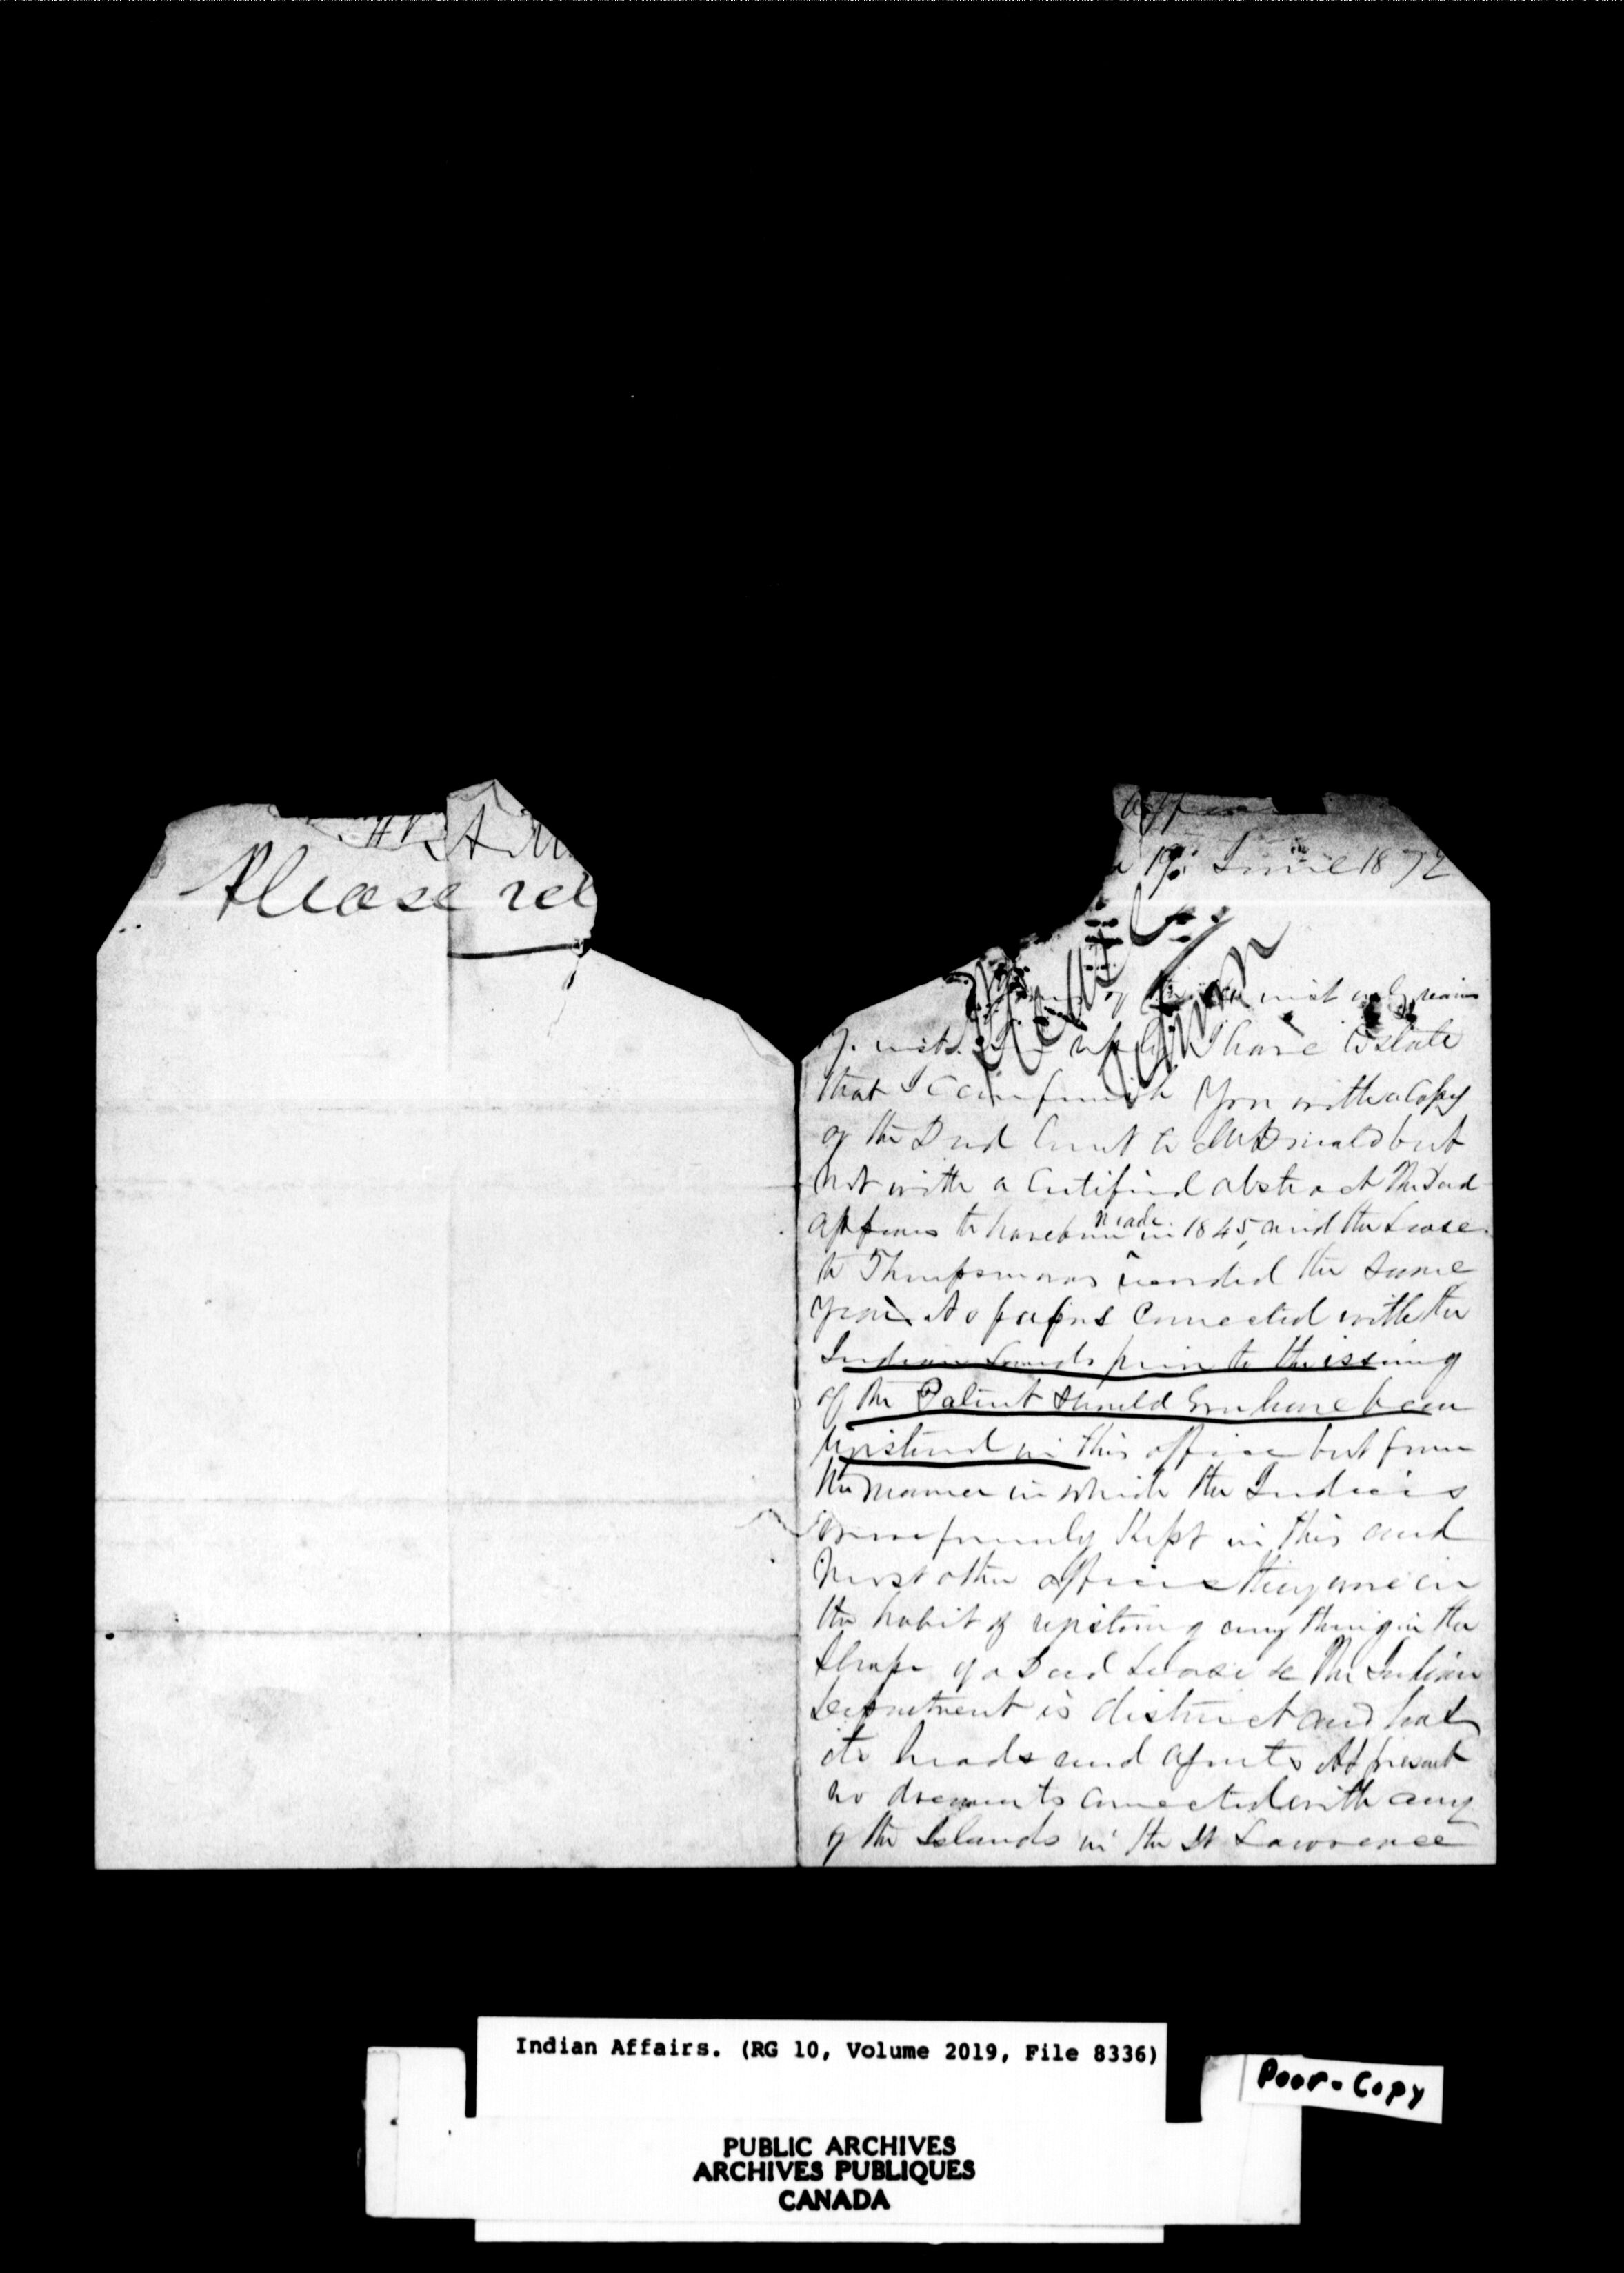 Please ret
office
19 June 1872
of inst. I have to state
that I can furnish you with a Copy
of the Deed to McDonald but
not with a Certified abstract The Deed
appears to have been made in 1845, and the Lease
to Thompson was the same
year No papers connected with the
Indian Lands prior to the issuing
of the Patent should Ever have been
registered in this office but from
the manner in which the Indicies
were formerly Kept in this and
most other offices they were in
the habit of registering any thing in the
Shape of a Deed Lease &c The Indian
Department is distinct and has
its heads and agents At present
no documents connected with any
of the Islands in the St Lawrence
Indian Affairs. (RG 10, Volume 2019, File 8336)
Poor-Copy
PUBLIC ARCHIVES
ARCHIVES PUBLIQUES
CANADA